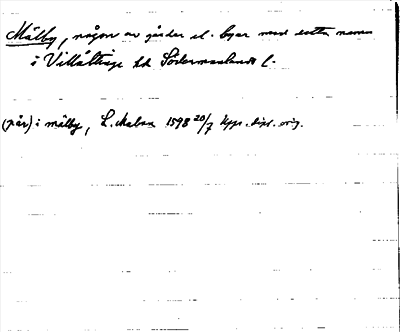 Mälby, någon av gårdar el. byar med detta namn
i Villåttinge hd Södermanlands l.
(på) i mälby, L. 1598 20/7 Upps. dipl. orig.